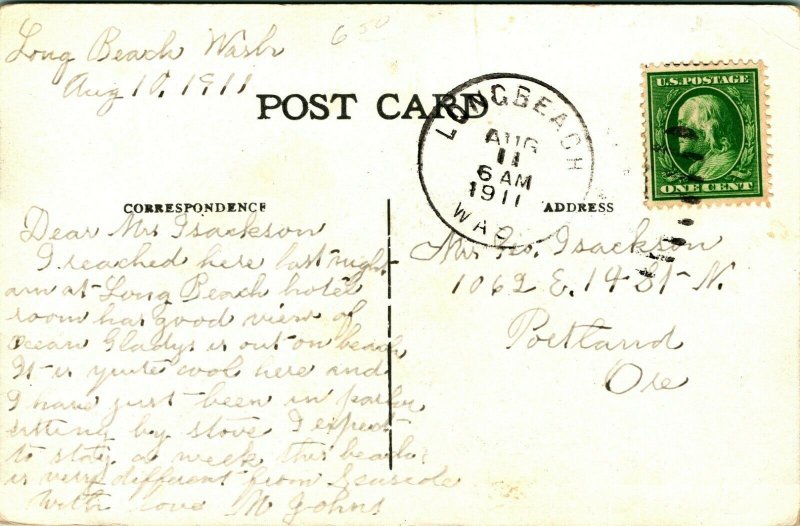 Long Beach Wash
Aug 10, 1911
650
POST CARD
LONGBEACH
AUG
11
6 AM
1911
WAS
U.S. POSTAGE
ONE CENT
CORRESPONDENCE
Dear Mrs Isackson
I reached here last night
am at Long Beach hotel
room has good view of
ocean Gladys is out on beach
It is quite cool here and
I have just been in parlor
sitting by stove I expect
to stay a week this beach
is very different from Seaside
With love M Johns
ADDRESS
Mrs Geo. Isackson
1062 E. 14 St N.
Portland
Ore